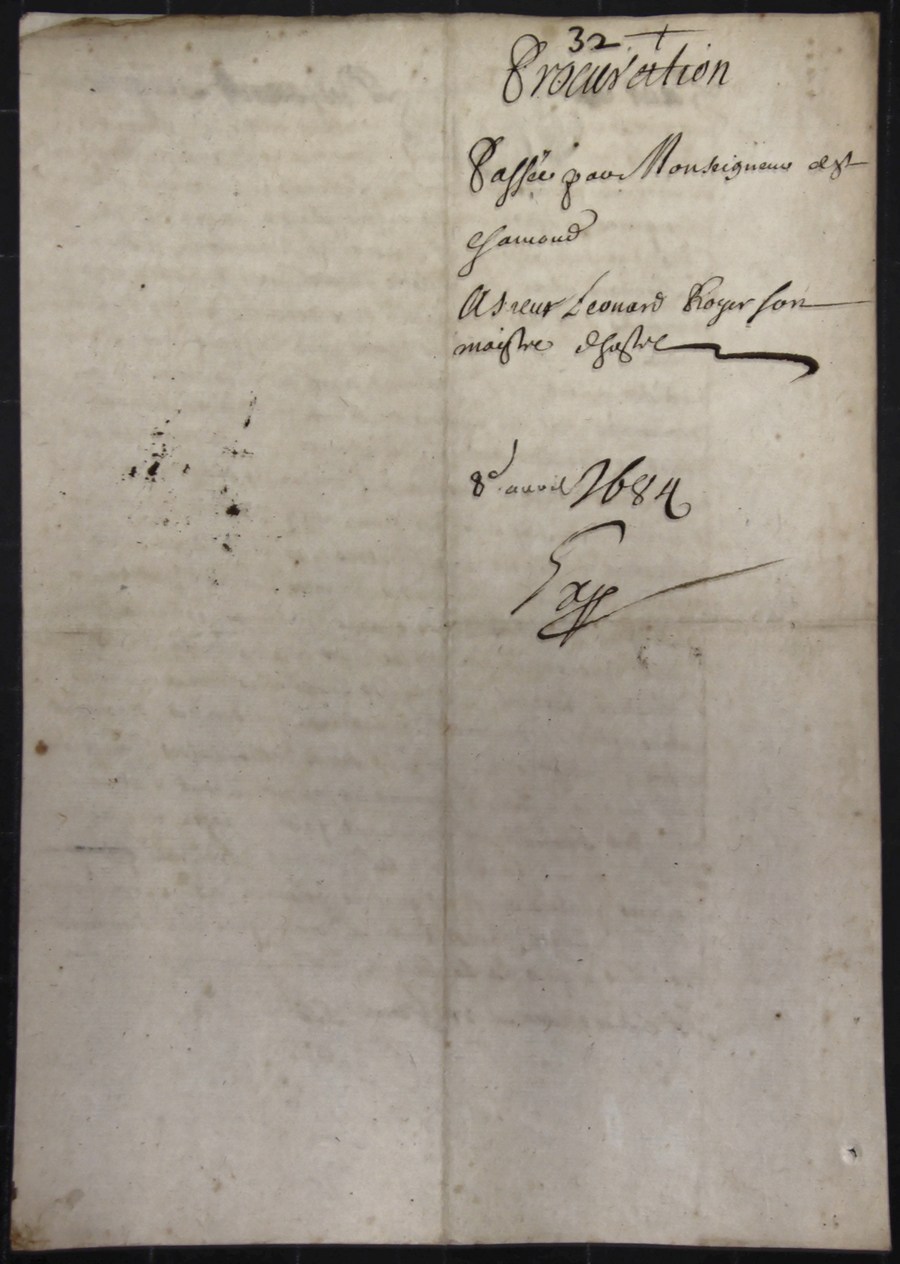 32 +
Procuration
Passée par Monseigneur de St
Chamond
A Sieur Leonard Royer son
maistre dhostel
8e auvril 1684